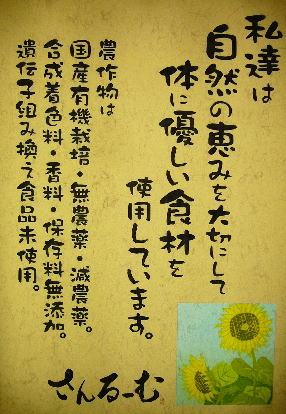 私達は
自然の恵みを大切にして
体に優しい食材を
使用しています。
農作物は
国産有機栽培・無農薬・減農薬。
合成着色料・香料・保存料無添加。
遺伝子組み換え食品未使用。
さんるーむ